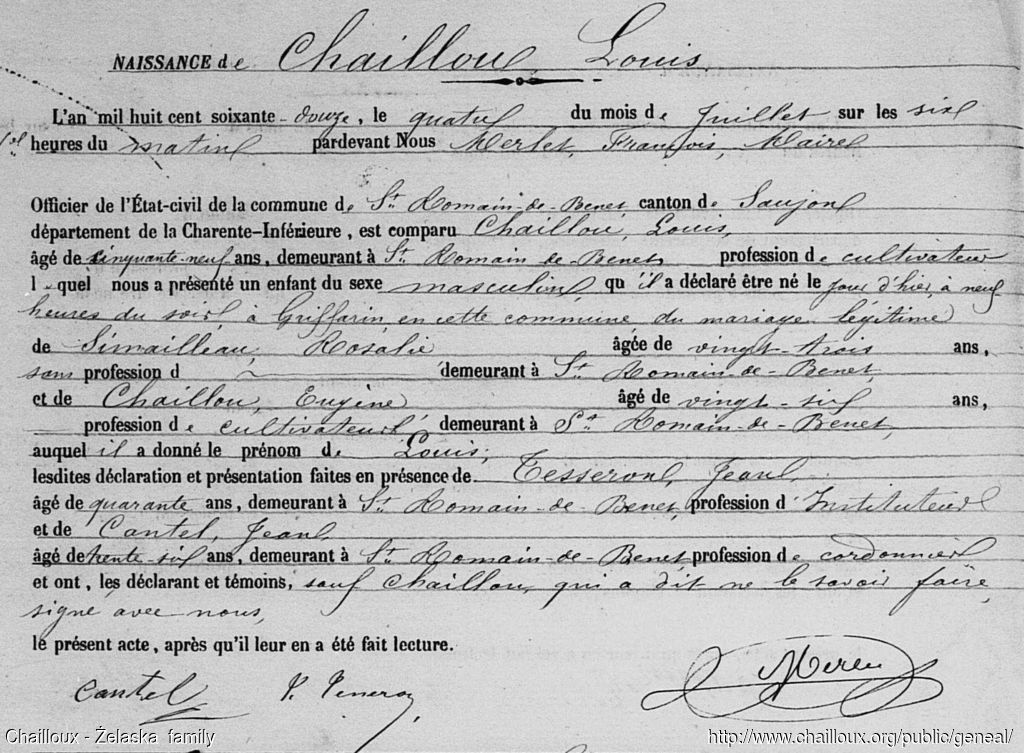 NAISSANCE de Chaillou Louis
L'an mil huit cent soixante-douze, le quatre du mois de Juillet sur les six
heures du matin pardevant Nous Merlet, François, Maire
Officier de l'État-civil de la commune de St. Romain-de-Benet canton de Saujon
département de la Charente-Inférieure, est comparu Chaillou, Louis,
âgé de cinquante-neuf ans, demeurant à St. Romain-de-Benet, profession de cultivateur
lequel nous a présenté un enfant du sexe masculin, qu'il a déclaré être né le jour d'hier, à neuf
heures du soir, à Griffarin, en cette commune, du mariage légitime
de Simailleau, Rosalie âgée de vingt-trois ans,
sans profession d demeurant à St. Romain-de-Benet,
et de Chaillou, Eugène âgé de vingt-six ans,
profession de cultivateur, demeurant à St. Romain-de-Benet,
auquel il a donné le prénom de Louis;
lesdites déclaration et présentation faites en présence de Tesseron, Jean,
âgé de quarante ans, demeurant à St. Romain-de-Benet, profession d'Instituteur
et de Cantel, Jean,
âgé de trente-six ans, demeurant à St. Romain-de-Benet, profession de cordonnier
et ont, les déclarant et témoins, sauf Chaillou, qui a dit ne le savoir faire,
signé avec nous,
le présent acte, après qu'il leur en a été fait lecture.
Cantel
Chailloux - Żelaska family http://www.chailloux.org/public/geneal/